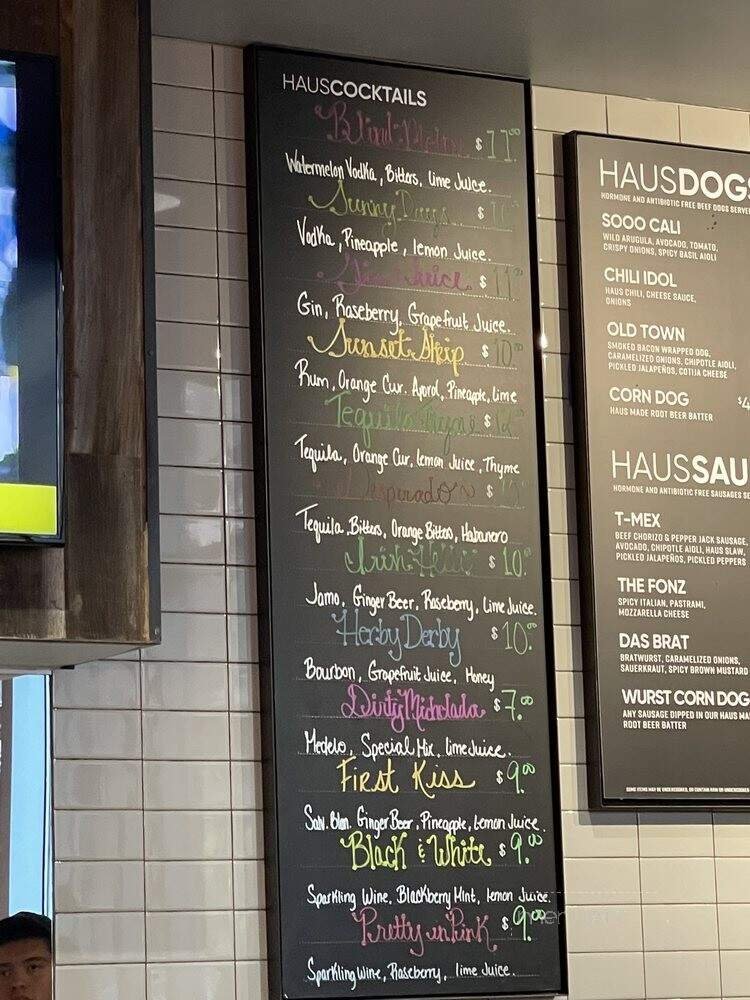 HAUSCOCKTAILS
Blind Melon $11.00
Watermelon Vodka, Bitters, Lime Juice.
Sunny Days $
Vodka, Pineapple, Lemon Juice.
Juice $11.00
Gin, Raseberry, Grapefruit Juice.
Sunset Strip $10.00
Rum, Orange Cur. Aporol, Pineapple, Lime
Tequila Thyme $12.00
Tequila, Orange Cur, Lemon Juice, Thyme
Desperado $
Tequila, Bitters, Orange Bitters, Habanero
Irish Hello $10.
Jamo, Ginger Beer, Raseberry, Lime Juice.
Herby Derby $10.00
Bourbon, Grapefruit Juice, Honey
Dirty Michelada $7.00
Medelo, Special Mix, Lime Juice.
First Kiss $9.00
Sauv. Blan. Ginger Beer, Pineapple, Lemon Juice.
Black & White $9.00
Sparkling Wine, Blackberry Mint, Lemon Juice.
Pretty in Pink $9.00
Sparkling Wine, Raseberry, Lime Juice.
HAUSDOGS
HORMONE AND ANTIBIOTIC FREE BEEF DOGS SERVE
SOOO CALI
WILD ARUGULA, AVOCADO, TOMATO,
CRISPY ONIONS, SPICY BASIL AIOLI
CHILI IDOL
HAUS CHILI, CHEESE SAUCE,
ONIONS
OLD TOWN
SMOKED BACON WRAPPED DOG,
CARAMELIZED ONIONS, CHIPOTLE AIOLI,
PICKLED JALAPEÑOS, COTIJA CHEESE
CORN DOG $4
HAUS MADE ROOT BEER BATTER
HAUSSAU
HORMONE AND ANTIBIOTIC FREE SAUSAGES SE
T-MEX
BEEF CHORIZO & PEPPER JACK SAUSAGE,
AVOCADO, CHIPOTLE AIOLI, HAUS SLAW,
PICKLED JALAPEÑOS, PICKLED PEPPERS
THE FONZ
SPICY ITALIAN, PASTRAMI,
MOZZARELLA CHEESE
DAS BRAT
BRATWURST, CARAMELIZED ONIONS,
SAUERKRAUT, SPICY BROWN MUSTARD
WURST CORN DOG
ANY SAUSAGE DIPPED IN OUR HAUS MA
ROOT BEER BATTER